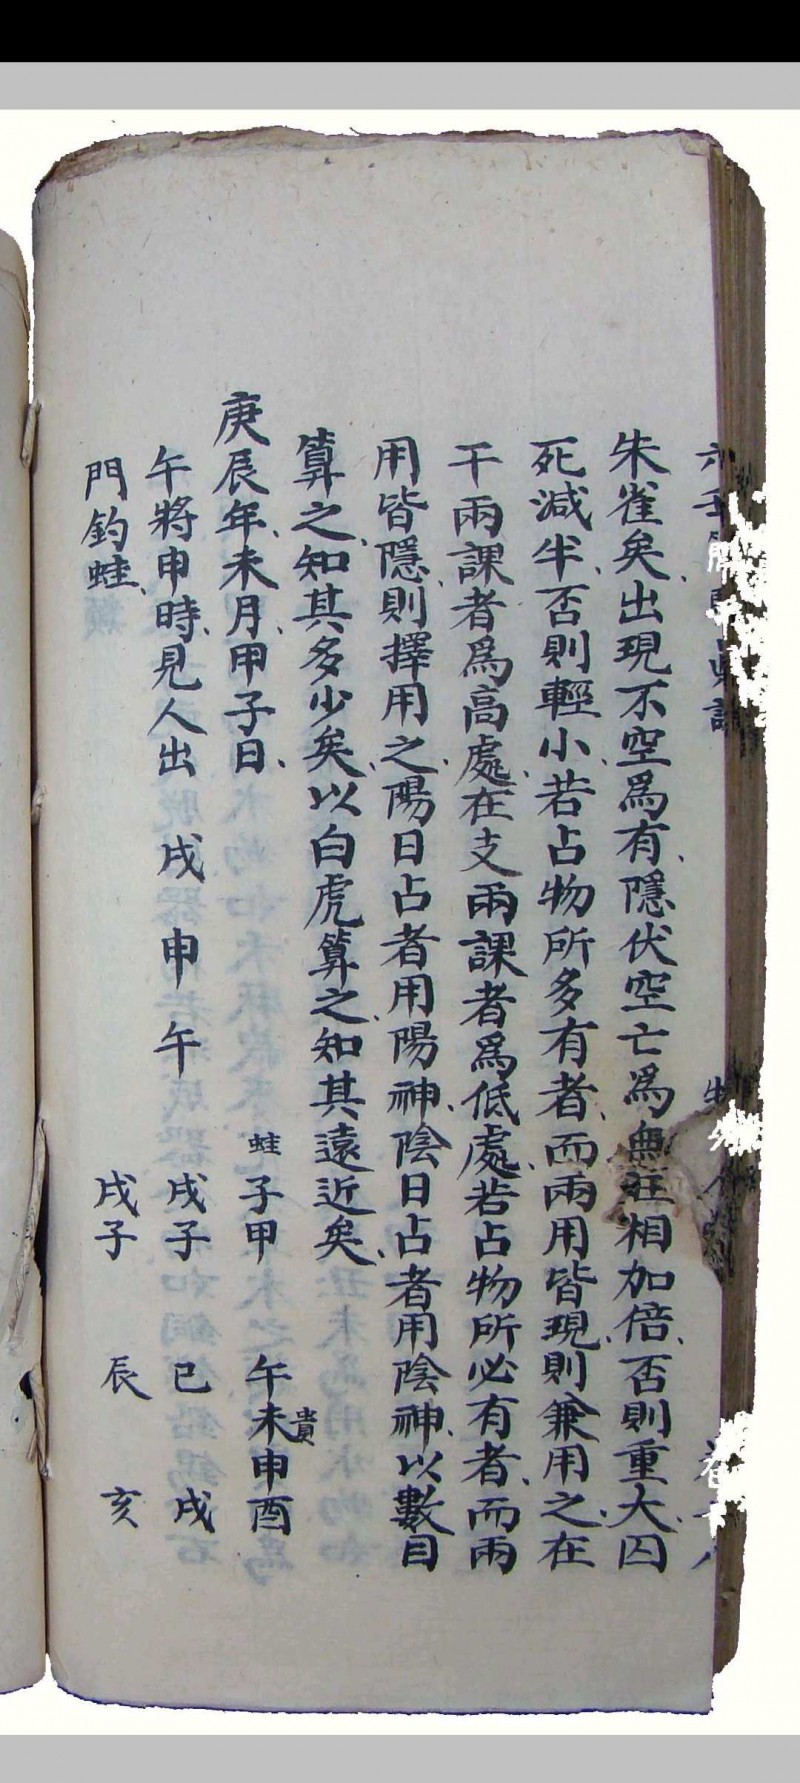 朱雀矣、出現不空爲有、隱伏空亡爲無、旺相加倍、否則重大、囚
死減半、否則輕小、若占物所多有者、而兩用皆現、則兼用之、在
干兩課者爲高處、在支兩課者爲低處、若占物所必有者、而兩
用皆隱、則擇用之、陽日占者用陽神、陰日占者用陰神、以數目
算之、知其多少矣、以白虎算之、知其遠近矣、
庚辰年、未月、甲子日、 蛙 子甲 午未申酉 貴
午將申時、見人出 戌 申 午 戌子 巳 戌
門釣蛙、 戌子 辰 亥